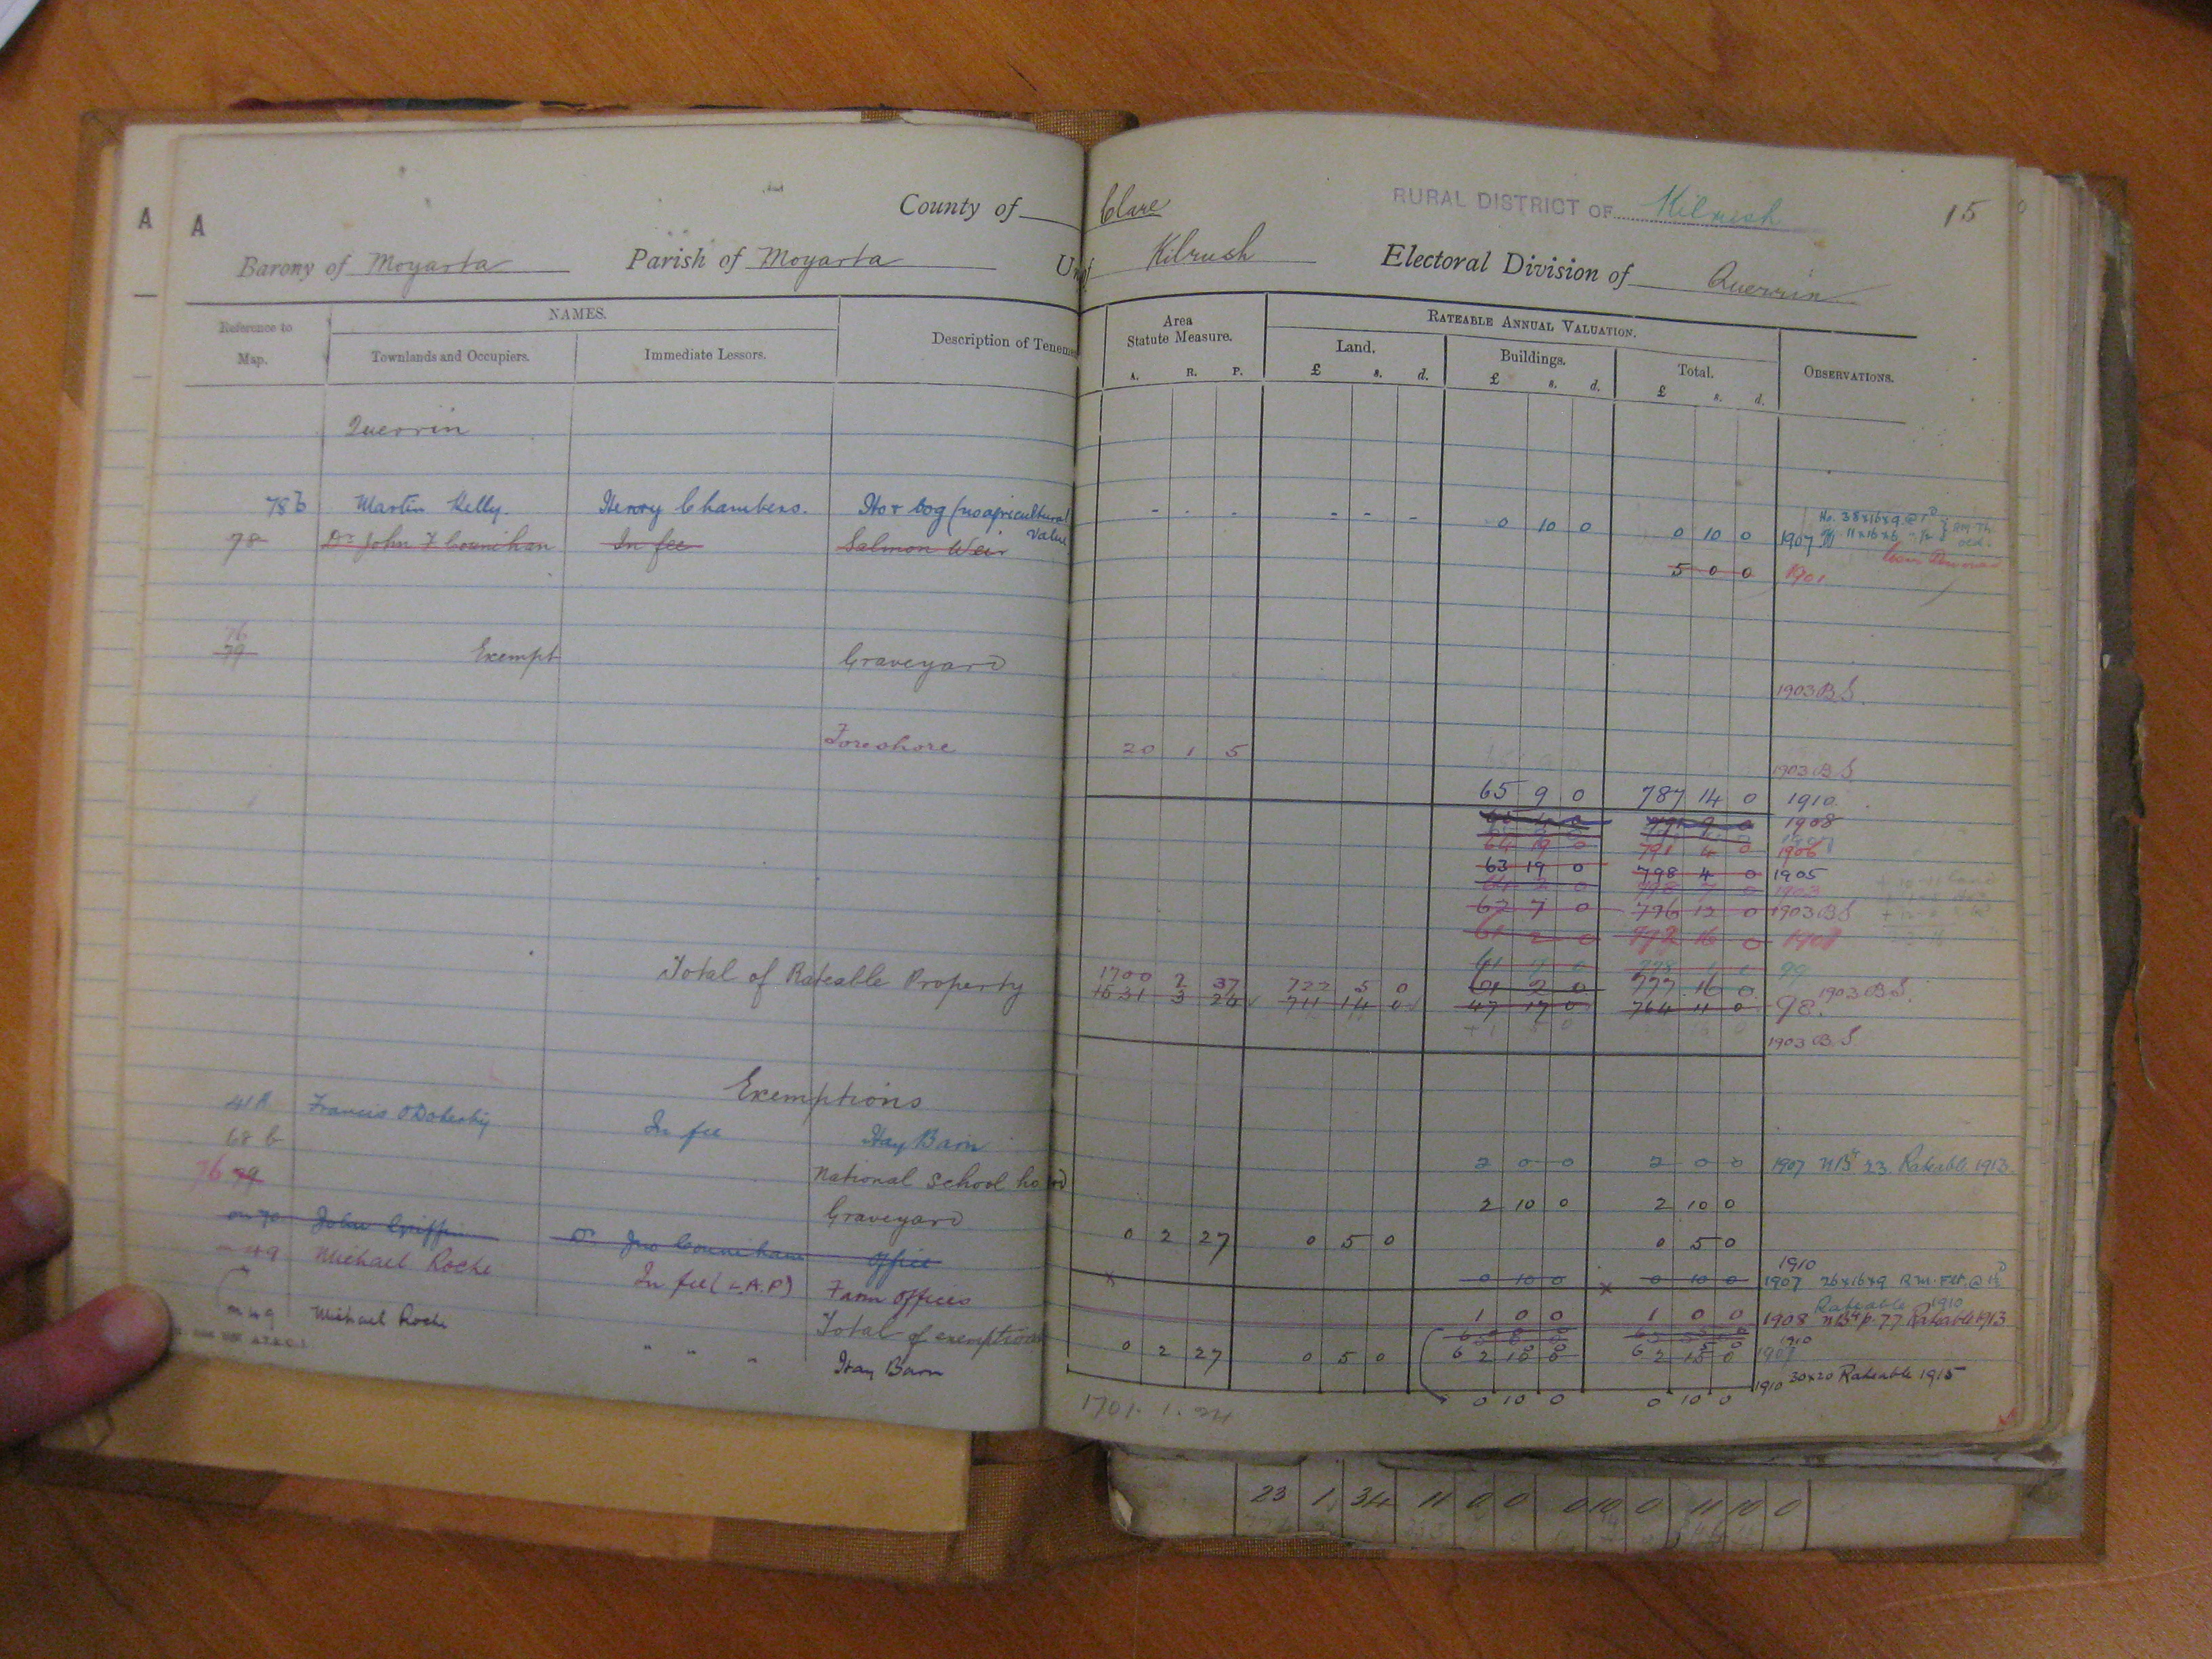 A A County of Clare RURAL DISTRICT OF Kilrush 15
Barony of Moyarta Parish of Moyarta Kilrush Electoral Division of Querrin
Reference to Map. NAMES. Description of Teneme Area Statute Measure. RATEABLE ANNUAL VALUATION. OBSERVATIONS.
Townlands and Occupiers. Immediate Lessors. Land. Buildings. Total.
A. R. P. £ s. d. £ s. d. £ s. d.
Querrin
78b Martin Kelly. Henry Chambers. Ho & bog (no agricultural value - - - - - - 0 10 0 0 10 0 1907 Ho. 38x16x9 @
78 Dr John F Counihan In fee Salmon Weir 5 0 0 1901.
76
79 Exempt Graveyard 1903 B S.
Foreshore 20 1 5 1903 B S
65 9 0 787 14 0 1910.
1908
64 19 0 791 4 0 1906
63 19 0 798 4 0 1905
1903
62 7 0 796 12 0 1903 B S
61 2 0 16 0
99
1700 2 37 722 5 0 61 2 0 777 16 0 1903 B S.
Total of Rateable Property 1631 3 24 711 14 0 47 17 0 764 11 0 98.
1903 B S.
Exemptions
41A Francis O'Doherty In fee Hay Barn 2 0 0 2 0 0 1907 23 Rateable 1913
68 b National School ho 2 10 0 2 10 0
76 79 Graveyard 0 2 27 0 5 0 0 5 0
1910
on 70 John Griffin Dr Jno Counihan Office 0 10 0 0 10 0 1907 26x16x9
Rateable 1910
49 Michael Roche In fee (L.A.P) Farm Offices 1 0 0 1 0 0 1908 p. 77 Rateable 1913
Total of exemptions 0 2 27 0 5 0 1907
on 49 Michael Roche " " " Hay Barn 0 10 0 0 10 0 1910 30x20 Rateable 1915
1701. 1. 24
23 1 34 11 0 0 0 10 0 11 10 0